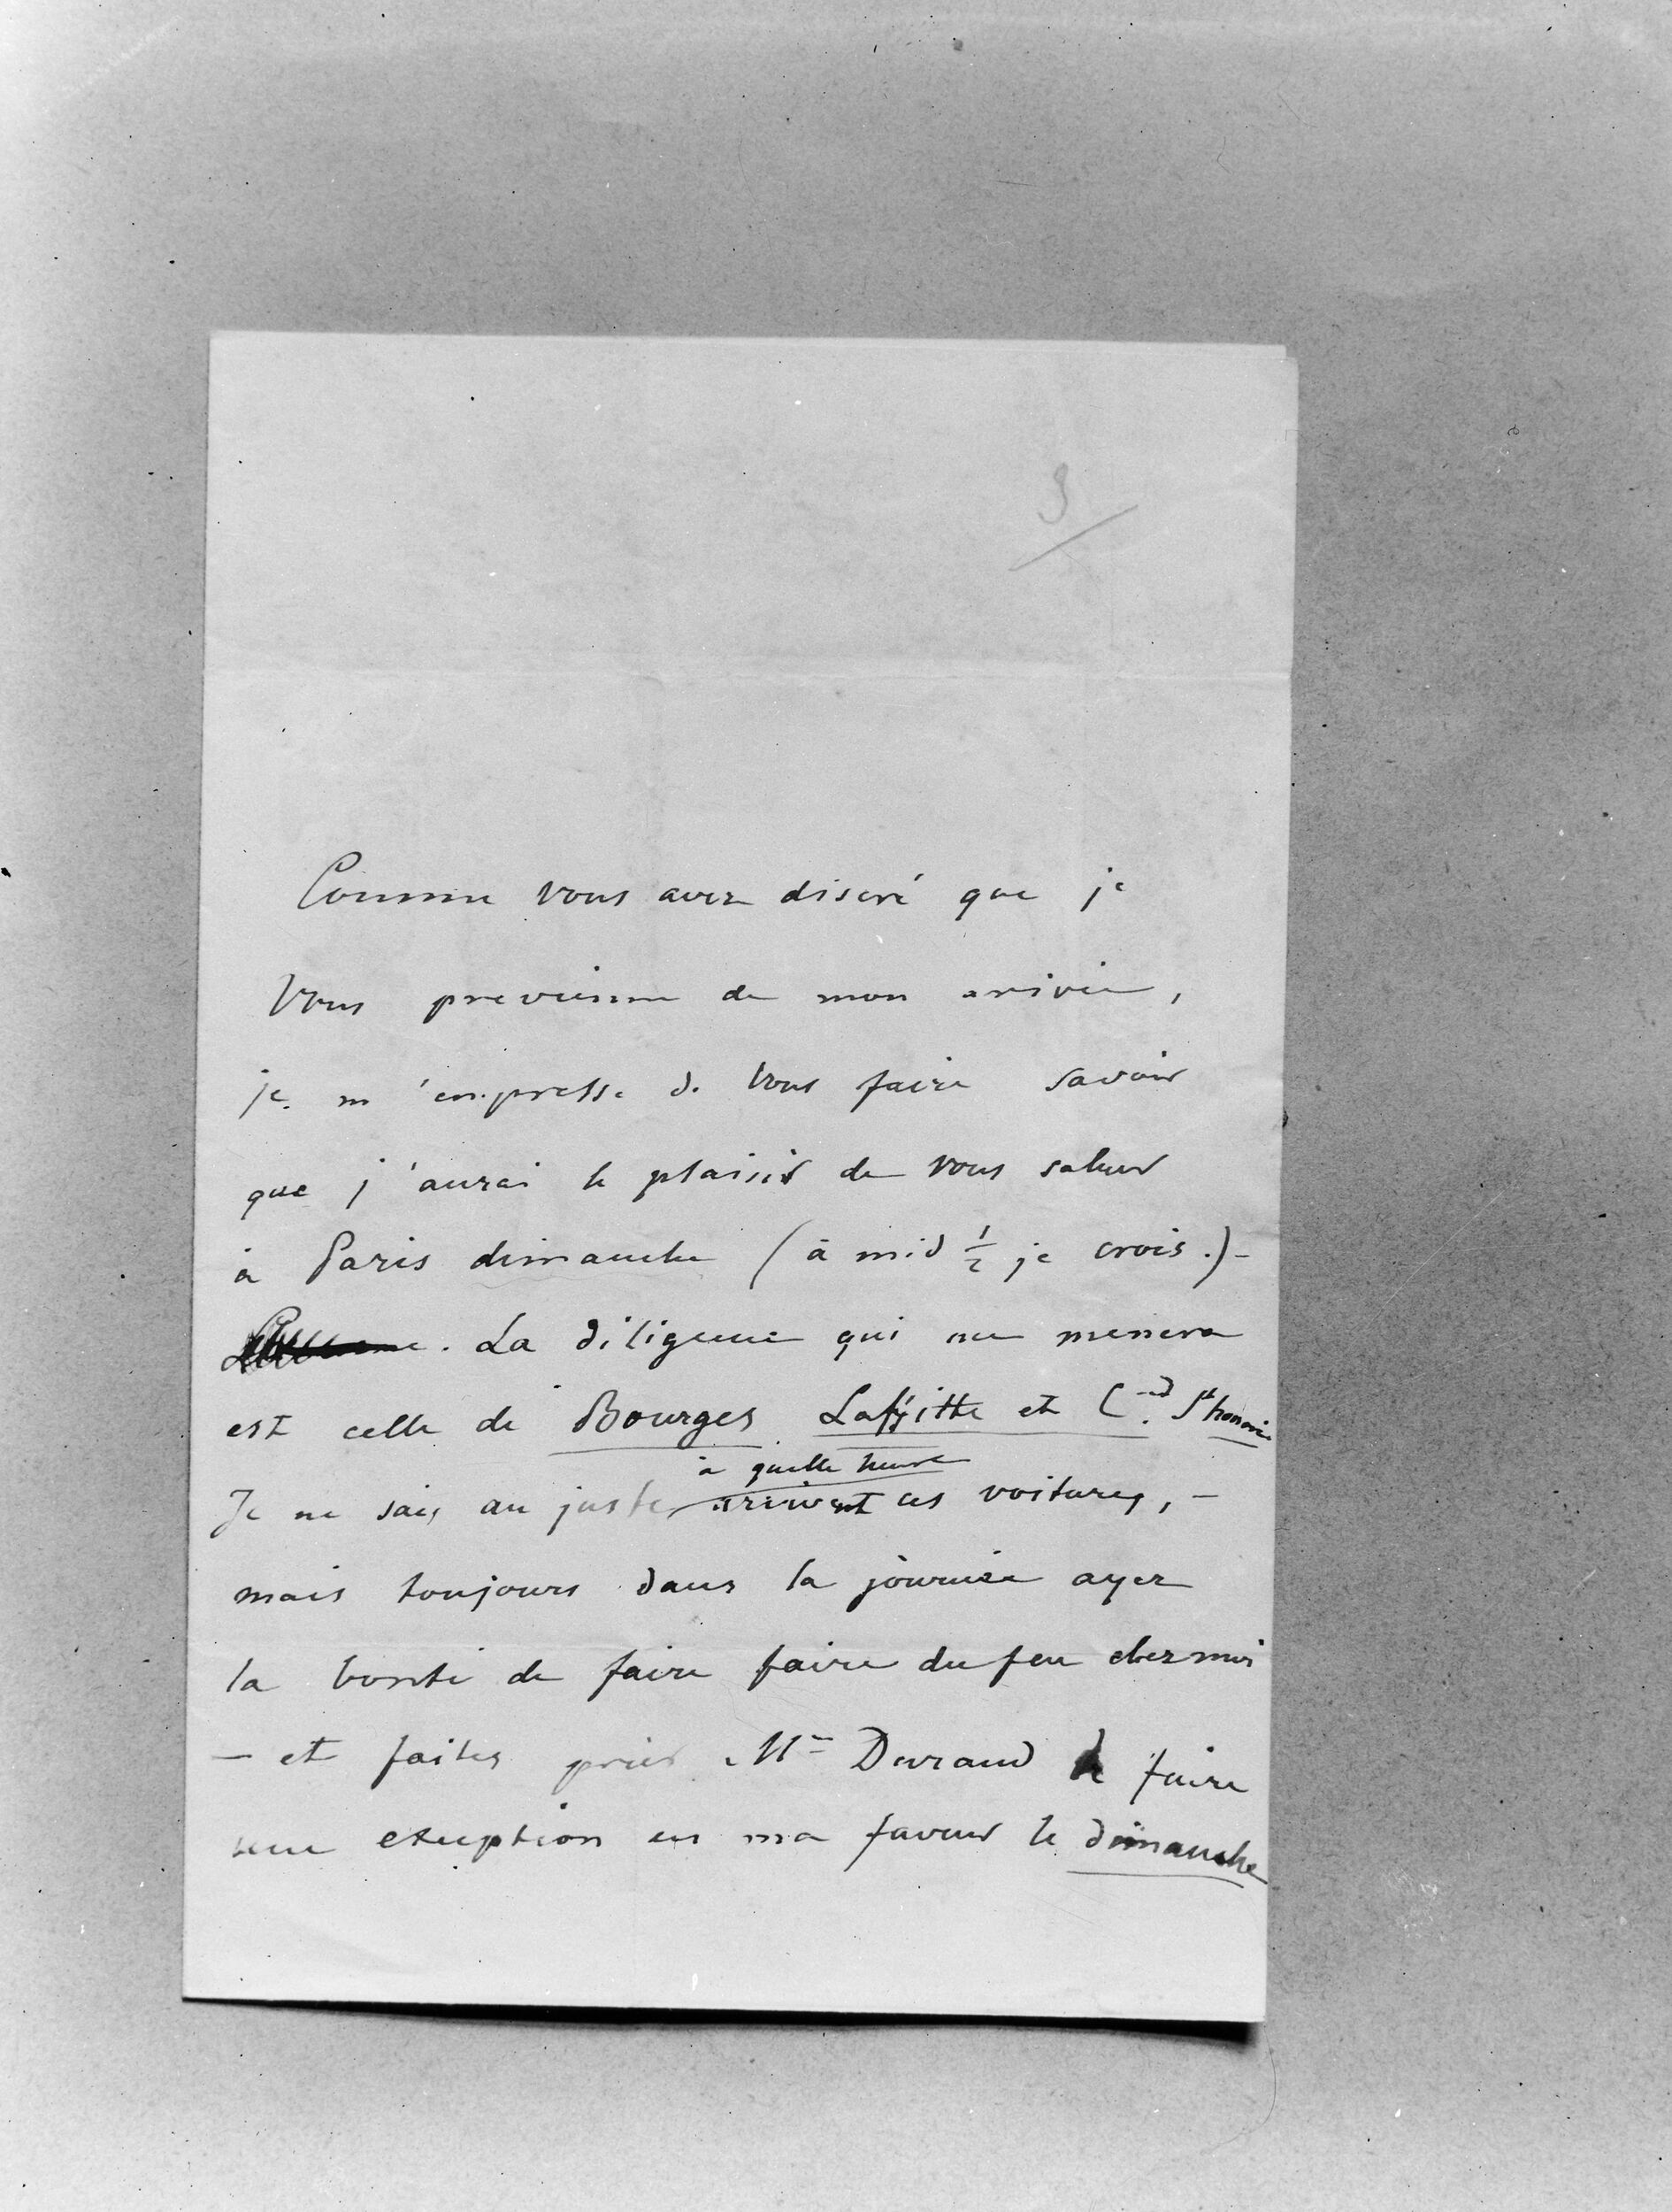 3
Comme vous avez diseré que je
Vous previenne de mon arivée,
je m'empresse de vous faire savoir
que j'aurai le plaisir de vous saluer
à Paris dimanche (à mid ½ je crois.)-
La diligence qui me menera
est celle de Bourges Laffitte et C. St honoré
à quelle heure
Je ne sais au juste arrivent ces voitures, -
mais toujours dans la journée ayez
la bonté de faire faire du feu chez moi
- et faites prier Mr Durand de faire
une exeption en ma faveur le dimanche